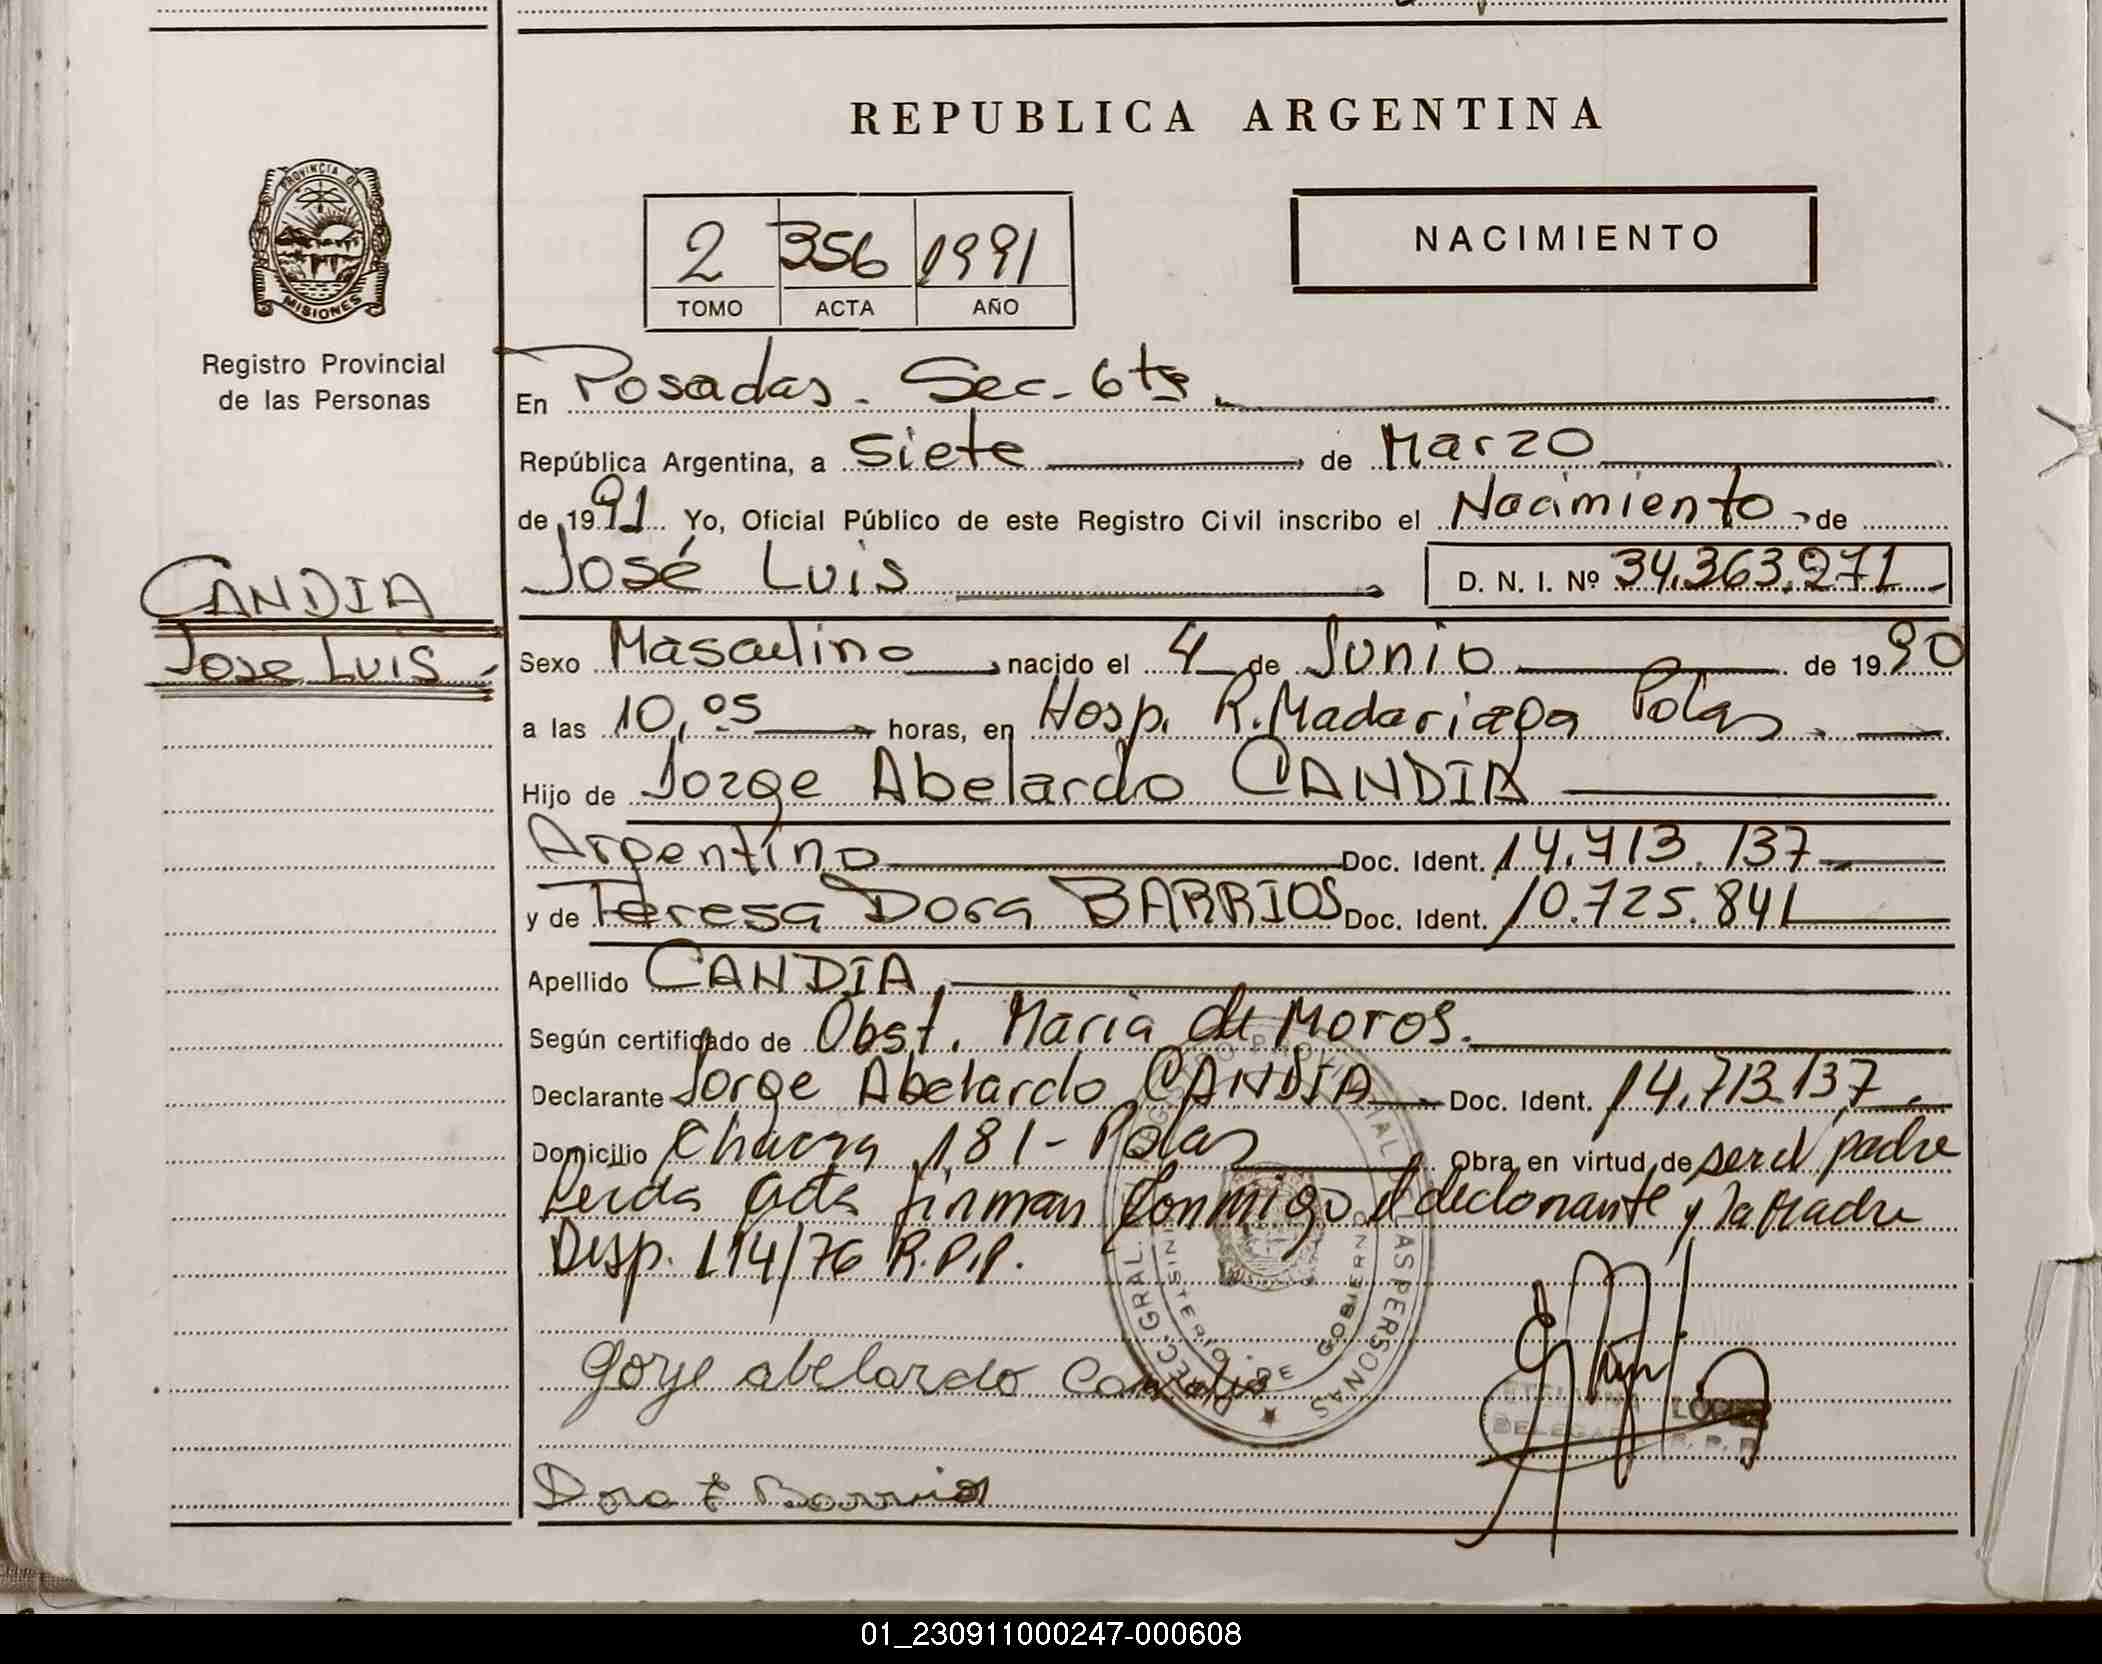 REPUBLICA ARGENTINA
PROVINCIA DE
MISIONES
2 356 1991
TOMO ACTA AÑO
NACIMIENTO
Registro Provincial
de las Personas
En Posadas. Sec. 6ta.
República Argentina, a siete de Marzo
de 1991 Yo, Oficial Público de este Registro Civil inscribo el Nacimiento, de
José Luis D. N. I. Nº 34.363.271
CANDIA
Jose Luis
Sexo Masculino, nacido el 4 de Junio de 1990
a las 10,05 horas, en Hosp. R. Madariaga Pdas.
Hijo de Jorge Abelardo CANDIA
Argentino Doc. Ident. 14.713.137
y de Teresa Dora BARRIOS Doc. Ident. 10.725.841
Apellido CANDIA
Según certificado de Obst. Maria de Moros.
Declarante Jorge Abelardo CANDIA Doc. Ident. 14.713.137.
Domicilio Chacra 181 - Pdas Obra en virtud de ser el padre
Leida Acta firman conmigo el declarante y la Madre
Disp. 114/76 R.P.P.
DIREC. GRAL. REGISTRO PROVINCIAL DE LAS PERSONAS
MINISTERIO DE GOBIERNO
Gorje abelardo Candia
LOPEZ
DELEGAD R. P. P.
Dora t Barrios
01_230911000247-000608